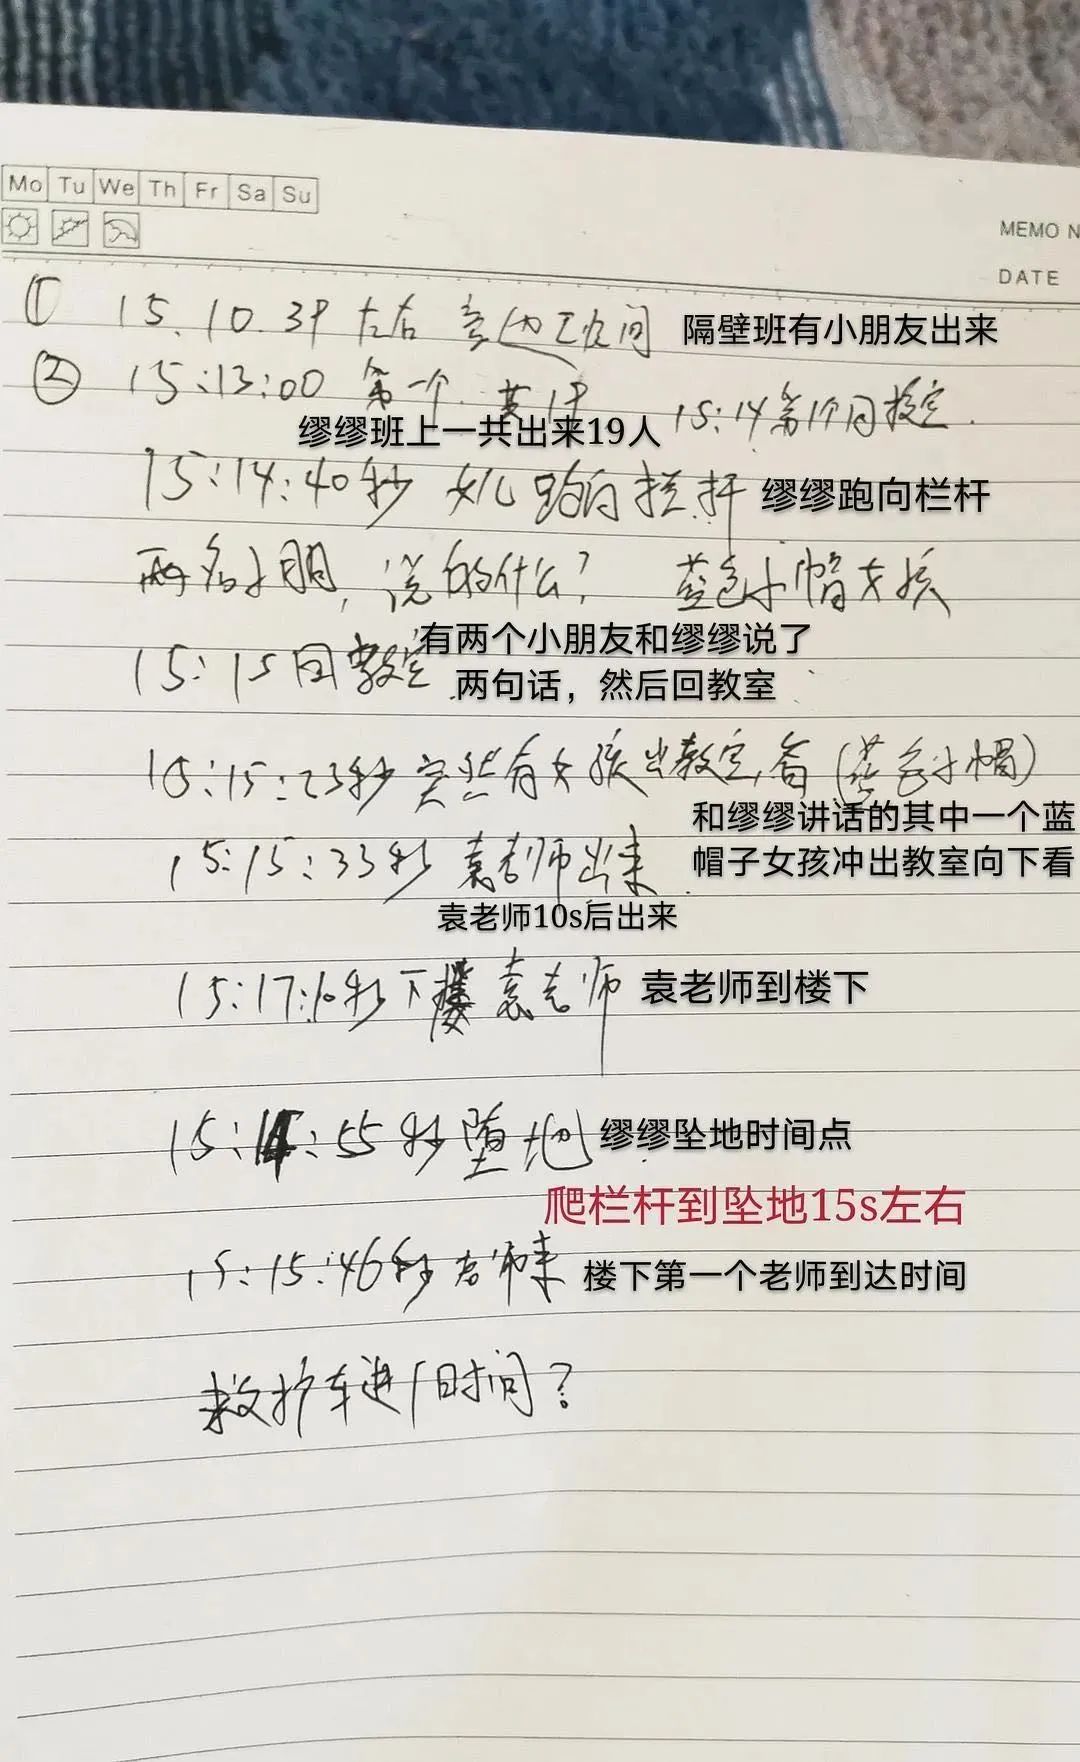 Mo Tu We Th Fr Sa Su
MEMO N
DATE
① 15.10.39 左右 旁边 间 隔壁班有小朋友出来
② 15:13:00 第一个 共19 15:14 第1个回教室.
缪缪班上一共出来19人
15:14:40秒 女儿跑向栏杆 缪缪跑向栏杆
两名小朋, 说的什么? 蓝色小帽女孩
有两个小朋友和缪缪说了
15:15 回教室 两句话，然后回教室
15:15:23秒 突然有女孩出教室看(蓝色小帽)
和缪缪讲话的其中一个蓝
15:15:33秒 袁老师出来 帽子女孩冲出教室向下看
袁老师10s后出来
15:17:10秒下楼 袁老师 袁老师到楼下
15:14:55秒堕地 缪缪坠地时间点
爬栏杆到坠地15s左右
15:15:46秒老师来 楼下第一个老师到达时间
救护车进 时间?